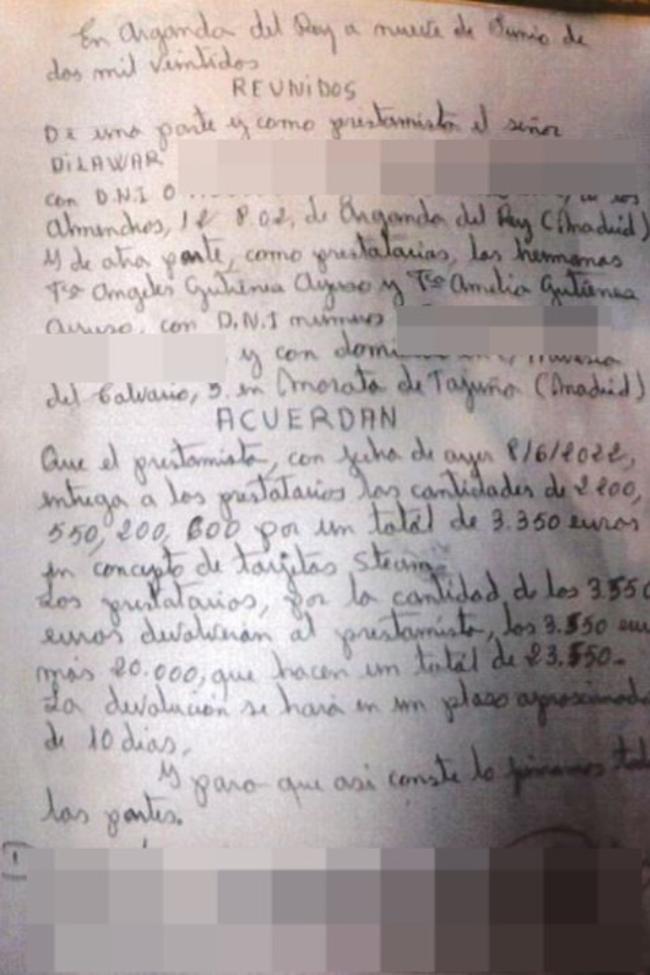 En Arganda del Rey a nueve de Junio de
dos mil veintidos
REUNIDOS
De una parte y como prestamista el señor
DILAWAR
con D.N.I 0
almendros, 12 8 02, de Arganda del Rey (Madrid)
y de otra parte, como prestatarias, las hermanas
Mª Angeles Gutiérrez Ayuso y Mª Amelia Gutiérrez
Ayuso, con D.N.I numeros
y con
del Calvario, 5. en Morata de Tajuña (Madrid)
ACUERDAN
Que el prestamista, con fecha de ayer 8/6/2022,
entrega a los prestatarios las cantidades de 2200,
550, 200, 600 por un total de 3.350 euros
en concepto de tarjetas Steam.
Los prestatarios, por la cantidad de los 3.550
euros devolverán al prestamista, los 3.550
más 20.000, que hacen un total de 23.550.
La devolución se hará en un plazo aproximado
de 10 dias.
Y para que asi conste lo firmamos
las partes.